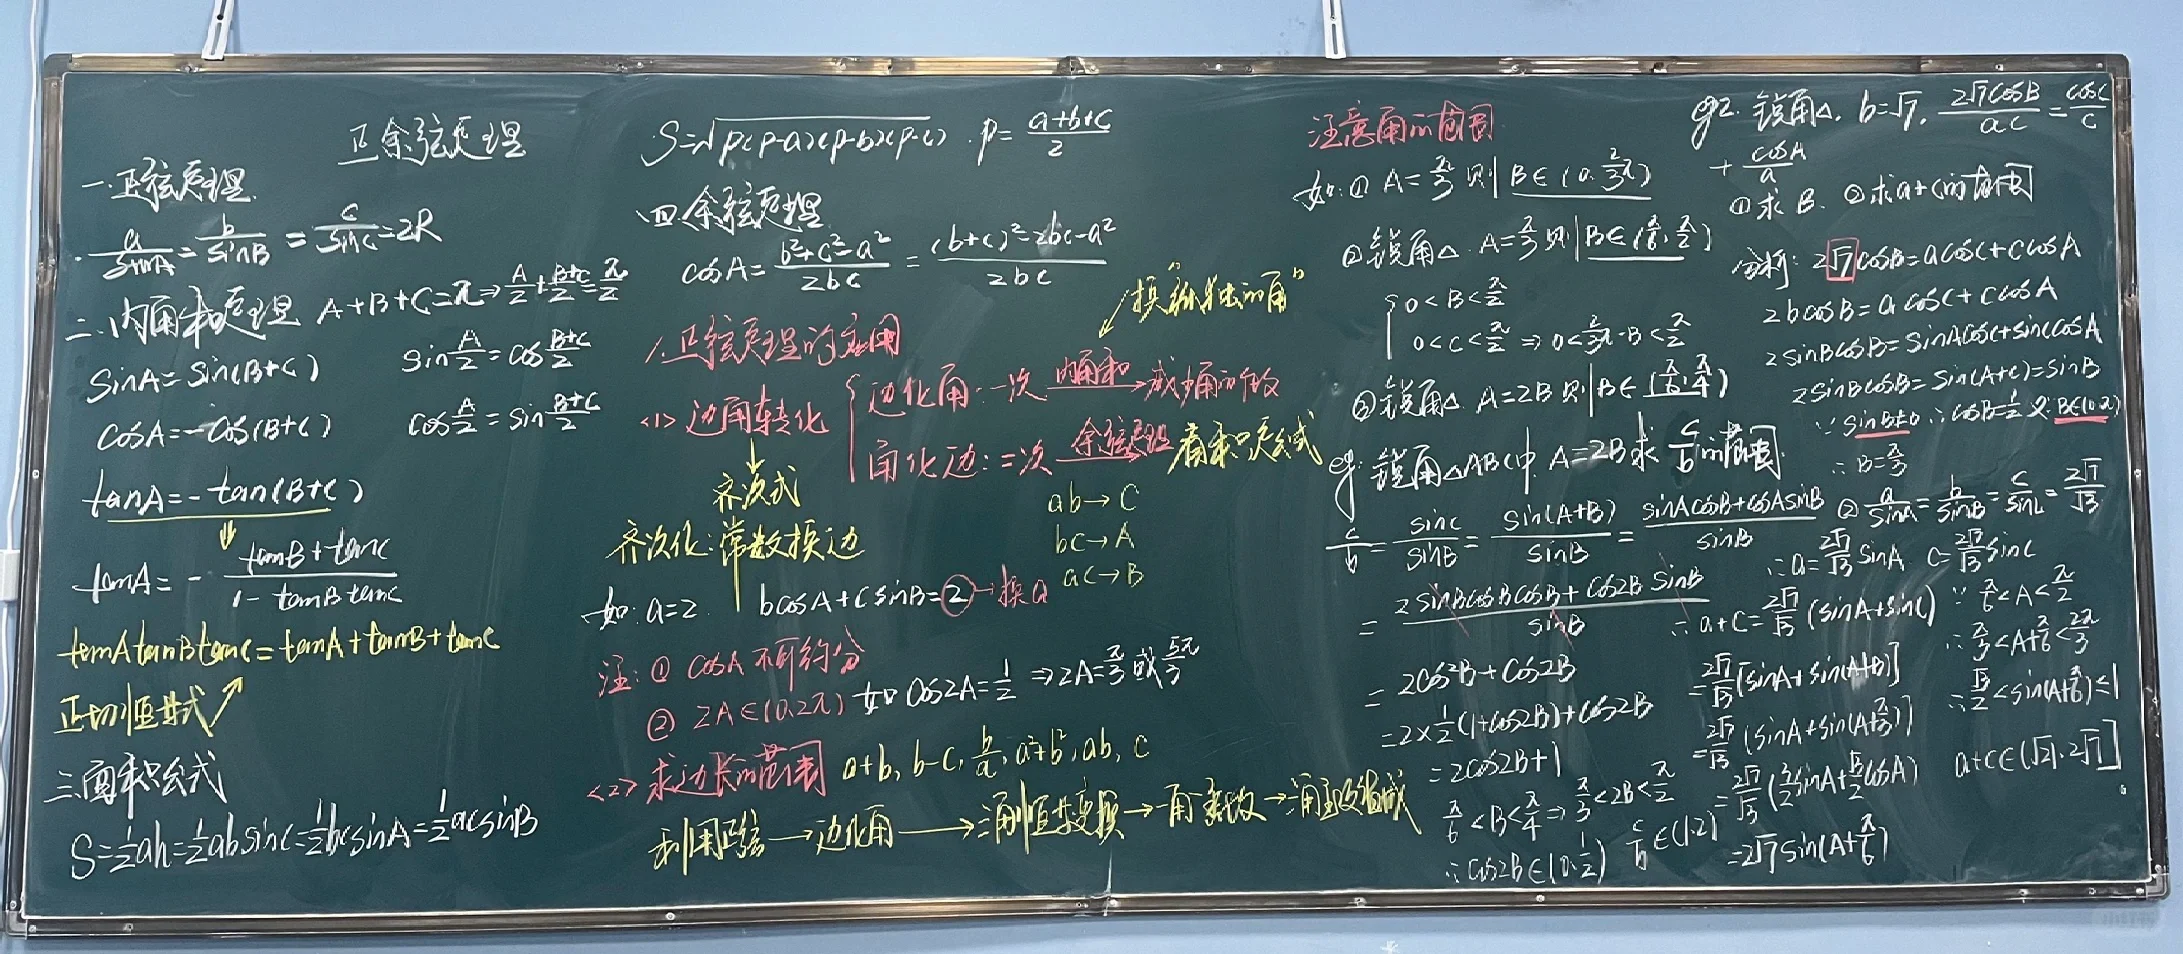 正余弦定理
一.正弦定理
a/sinA = b/sinB = c/sinC = 2R
二.内角和定理 A+B+C=π ⇒ A/2 + (B+C)/2 = π/2
sinA = sin(B+C) sin A/2 = cos (B+C)/2
cosA = -cos(B+C) cos A/2 = sin (B+C)/2
tanA = -tan(B+C)
⇓
tanA = - (tanB+tanC)/(1-tanBtanC)
tanAtanBtanC = tanA+tanB+tanC
正切恒等式 ↗
三.面积公式
S = 1/2 ah = 1/2 absinC = 1/2 bcsinA = 1/2 acsinB
S = √(p(p-a)(p-b)(p-c)) . p = (a+b+c)/2
四.余弦定理
cosA = (b²+c²-a²)/2bc = ((b+c)²-2bc-a²)/2bc
1.正弦定理的应用
换"孤独的角"
<1> 边角转化
边化角: 一次 内角和→ 减少角的个数
角化边: 二次 余弦定理→ 面积公式
↓
齐次式
齐次化: 常数换边
ab→C
bc→A
ac→B
如: a=2. bcosA+csinB=② → 换a
注: ① cosA 不可约分
② 2A∈(0,2π) 如 cos2A = 1/2 ⇒ 2A = π/3 或 5π/3
<2> 求边长的范围 a+b, b-c, b/a, a²+b², ab, c
利用正弦 → 边化角 → 三角恒等变换 → 一角一函数 →
注意角的范围
如: ① A = π/3 则 B∈(0, 2/3 π)
② 锐角△. A = π/3 则 B∈(π/6, π/2)
0<B<π/2
0<C<π/2 ⇒ 0<2/3 π-B<π/2
③ 锐角△ A=2B 则 B∈(π/6, π/4)
eg: 锐角△ABC中 A=2B 求 c/b 的范围.
c/b = sinC/sinB = sin(A+B)/sinB = (sinAcosB+cosAsinB)/sinB
= (2sinBcosBcosB+cos2B sinB)/sinB
= 2cos²B+cos2B
= 2×1/2(1+cos2B)+cos2B
= 2cos2B+1
π/6<B<π/4 ⇒ π/3<2B<π/2
∴ cos2B∈(0, 1/2) c/b∈(1,2)
eg2. 锐角△. b=√7, 2√7cosB/ac = cosC/c
+ cosA/a
① 求B. ② 求a+c的范围
分析: 2√7cosB = acosC+ccosA
2bcosB = acosC+ccosA
2sinBcosB = sinAcosC+sinCcosA
2sinBcosB = sin(A+C) = sinB
∵ sinB≠0 ∴ cosB = 1/2 又∵ B∈(0,π)
∴ B = π/3
② a/sinA = b/sinB = c/sinC = 2√7/√3
∴ a = 2√7/√3 sinA c = 2√7/√3 sinC
∴ a+c = 2√7/√3 (sinA+sinC)
= 2√7/√3 [sinA+sin(A+B)]
= 2√7/√3 [sinA+sin(A+π/3)]
= 2√7/√3 (3/2 sinA+√3/2 cosA)
= 2√7sin(A+π/6)
∵ π/6<A<π/2
∴ π/3<A+π/6<2π/3
∴ √3/2<sin(A+π/6)≤1
a+c∈(√21, 2√7]